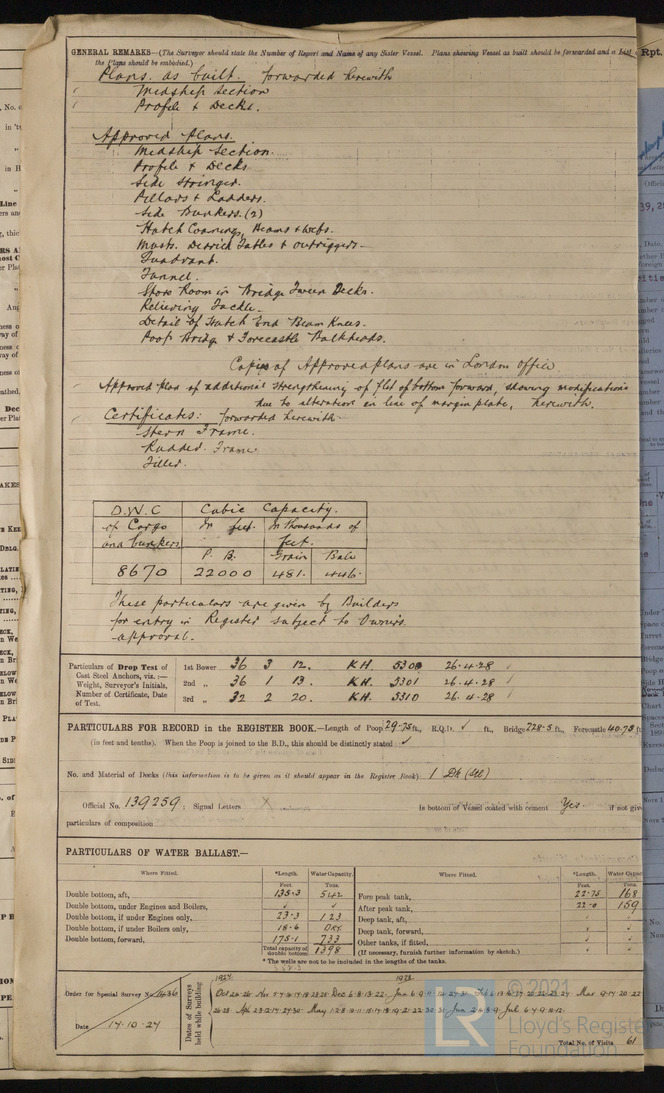 GENERAL REMARKS—(The Surveyor should state the Number of Report and Name of any Sister Vessel. Plans showing Vessel as built should be forwarded and a List of
the Plans should be embodied.)
Plans. as built. forwarded herewith
Midship Section
Profile & Decks.
Approved Plans.
Midship Section.
Profile & Decks
Side Stringer.
Pillars & Ladders.
Side Bunkers. (2)
Hatch Coamings, Beams & Webs.
Masts. Derrick Tables & outriggers.
Quadrant.
Funnel.
Store Room in Bridge Tween Decks.
Relieving Tackle.
Detail of Hatch End Beam Knees.
Poop Bridge & Forecastle Bulkheads.
Copies of Approved plans are in London Office
Approved plan of additional strengthening of flat of bottom forward, showing modifications
due to alteration in line of margin plate, herewith.
Certificates: forwarded herewith
Stern Frame.
Rudder Frame
Tiller.
D.W.C Cubic Capacity.
of Cargo In feet. In thousands of
and bunkers feet.
P. B. Grain Bale
8670 22000 481. 446.
These particulars are given by Builders
for entry in Register subject to Owners
approval.
Particulars of Drop Test of
Cast Steel Anchors, viz. :—
Weight, Surveyor's Initials,
Number of Certificate, Date
of Test.
1st Bower 36 3 12. KH. 26.4.28
2nd „ 36 1 13. KH. 5301 26.4.28
3rd „ 32 2 20. KH. 5310 26.4.28
PARTICULARS FOR RECORD in the REGISTER BOOK.—Length of Poop 29.75 ft., R.Q.D. ft., Bridge ft., Forecastle 40.75 ft
(in feet and tenths). When the Poop is joined to the B.D., this should be distinctly stated
No. and Material of Decks (this information is to be given as it should appear in the Register Book) 1 Dk (Stl)
Official No. 139259 ; Signal Letters Is bottom of Vessel coated with cement Yes. if not give
particulars of composition
PARTICULARS OF WATER BALLAST.—
Where Fitted. *Length. Water Capacity. Where Fitted. *Length. Water Capac
Feet. Tons. Feet. Tons.
Double bottom, aft, 135.3 542 Fore peak tank, 22.75 168
Double bottom, under Engines and Boilers, After peak tank, 22.0 159
Double bottom, if under Engines only, 23.3 123 Deep tank, aft,
Double bottom, if under Boilers only, 18.6 DRY. Deep tank, forward,
Double bottom, forward, 175.1 733 Other tanks, if fitted,
Total capacity of double bottom 1398 (If necessary, furnish further information by sketch.)
* The wells are not to be included in the lengths of the tanks.
Order for Special Survey No.
Date 14.10.27
Dates of Surveys
held while building
1927. 1928.
Total No. of Visits 61
© 2021
LR
Lloyd's Register
Foundation